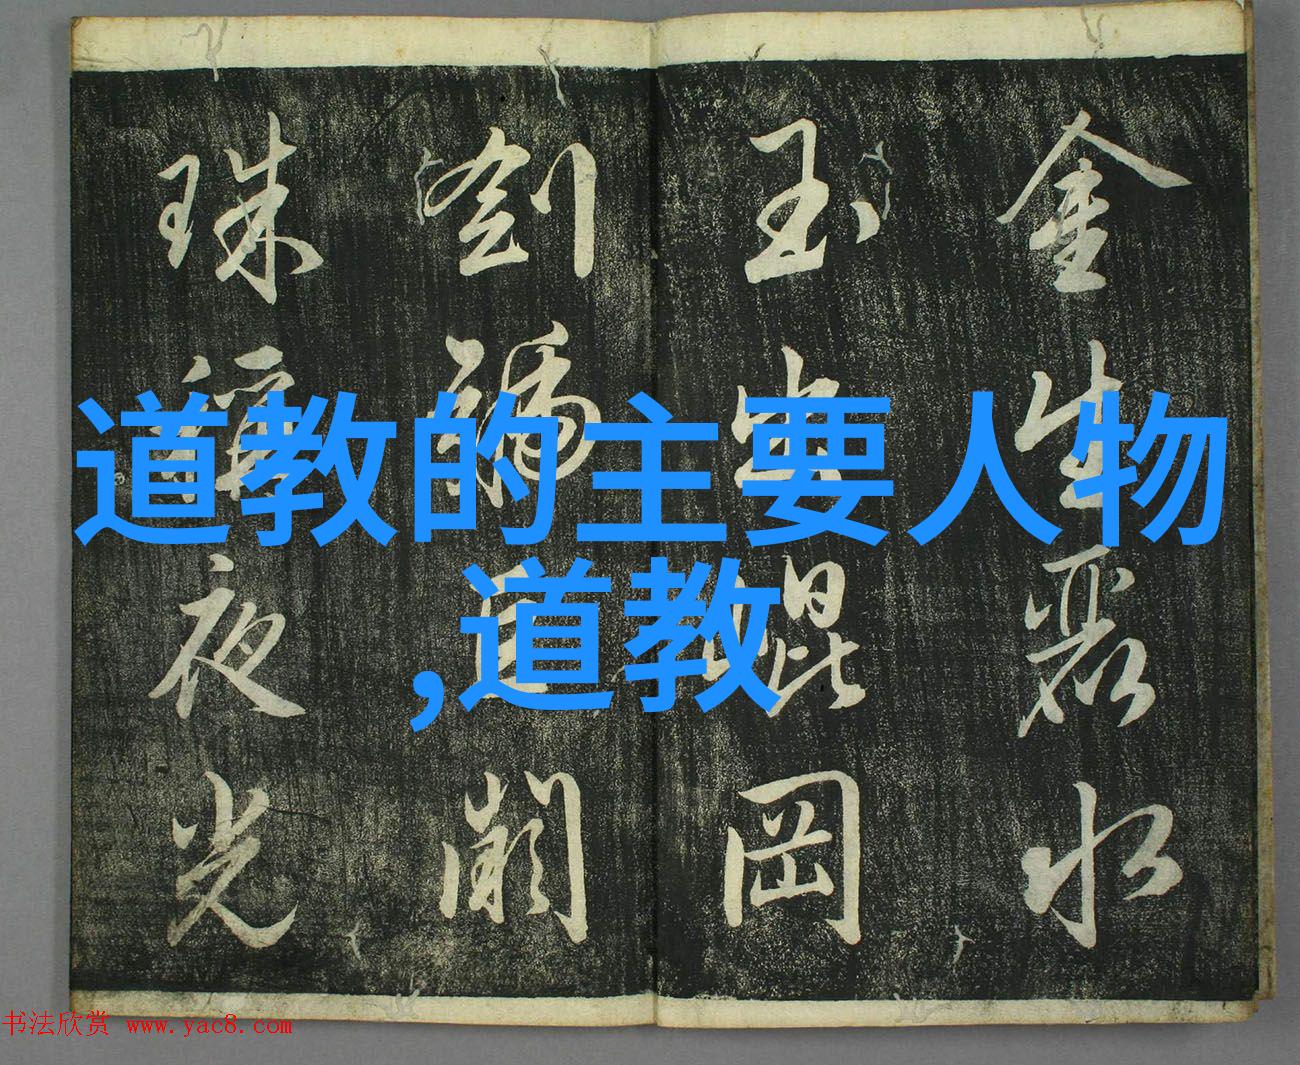 道教的主要人物
,道教
金生麗水
玉出崐岡
劍號巨闕
珠稱夜光
书法欣赏 www.yac8.com